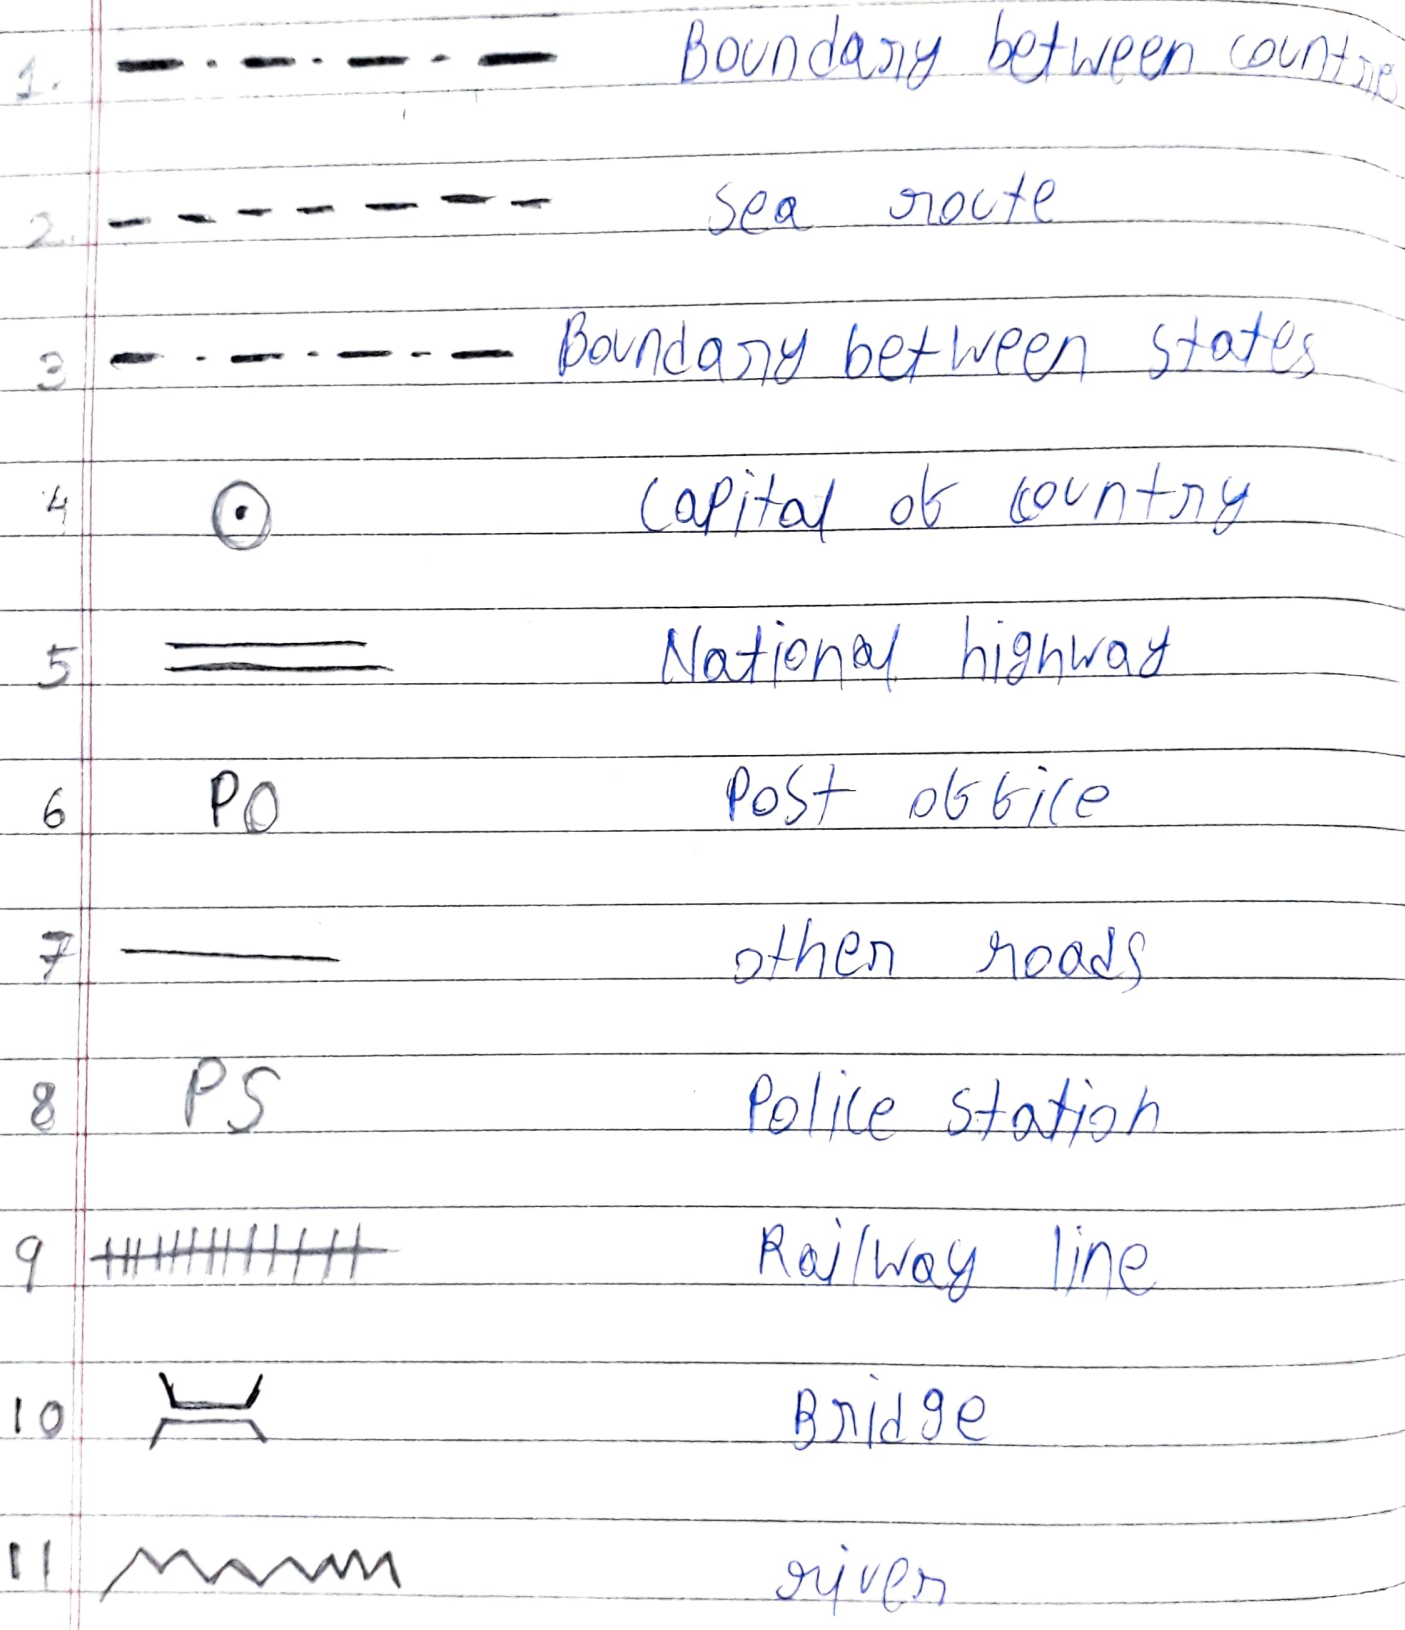 1. Boundary between countries
2. sea route
3 Boundary between states
4 Capital of country
5 National highway
6 PO Post office
7 other roads
8 PS Police station
9 Railway line
10 Bridge
11 river